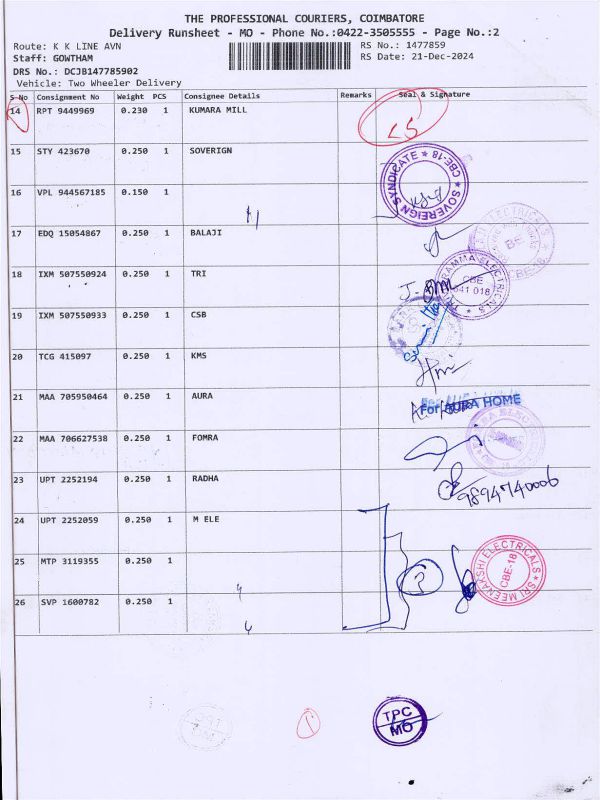 THE PROFESSIONAL COURIERS, COIMBATORE
Delivery Runsheet - MO - Phone No.:0422-3505555 - Page No.:2
Route: K K LINE AVN RS No.: 1477859
Staff: GOWTHAM RS Date: 21-Dec-2024
DRS No.: DCJB147785902
Vehicle: Two Wheeler Delivery
S No Consignment No Weight PCS Consignee Details Remarks Seal & Signature
14 RPT 9449969 0.230 1 KUMARA MILL
15 STY 423670 0.250 1 SOVERIGN
SOVEREIGN SYNDICATE ★ CBE-18 ★
16 VPL 944567185 0.150 1
17 EDQ 15054867 0.250 1 BALAJI
BE
CBE-18
18 IXM 507550924 0.250 1 TRI
CBE
641 018
19 IXM 507550933 0.250 1 CSB
20 TCG 415097 0.250 1 KMS
21 MAA 705950464 0.250 1 AURA
For AURA HOME
22 MAA 706627538 0.250 1 FOMRA
23 UPT 2252194 0.250 1 RADHA
9894740006
24 UPT 2252059 0.250 1 M ELE
25 MTP 3119355 0.250 1
?
SRI MEENAKSHI ELECTRICALS ★
CBE-18
26 SVP 1600782 0.250 1
1
TPC
MO